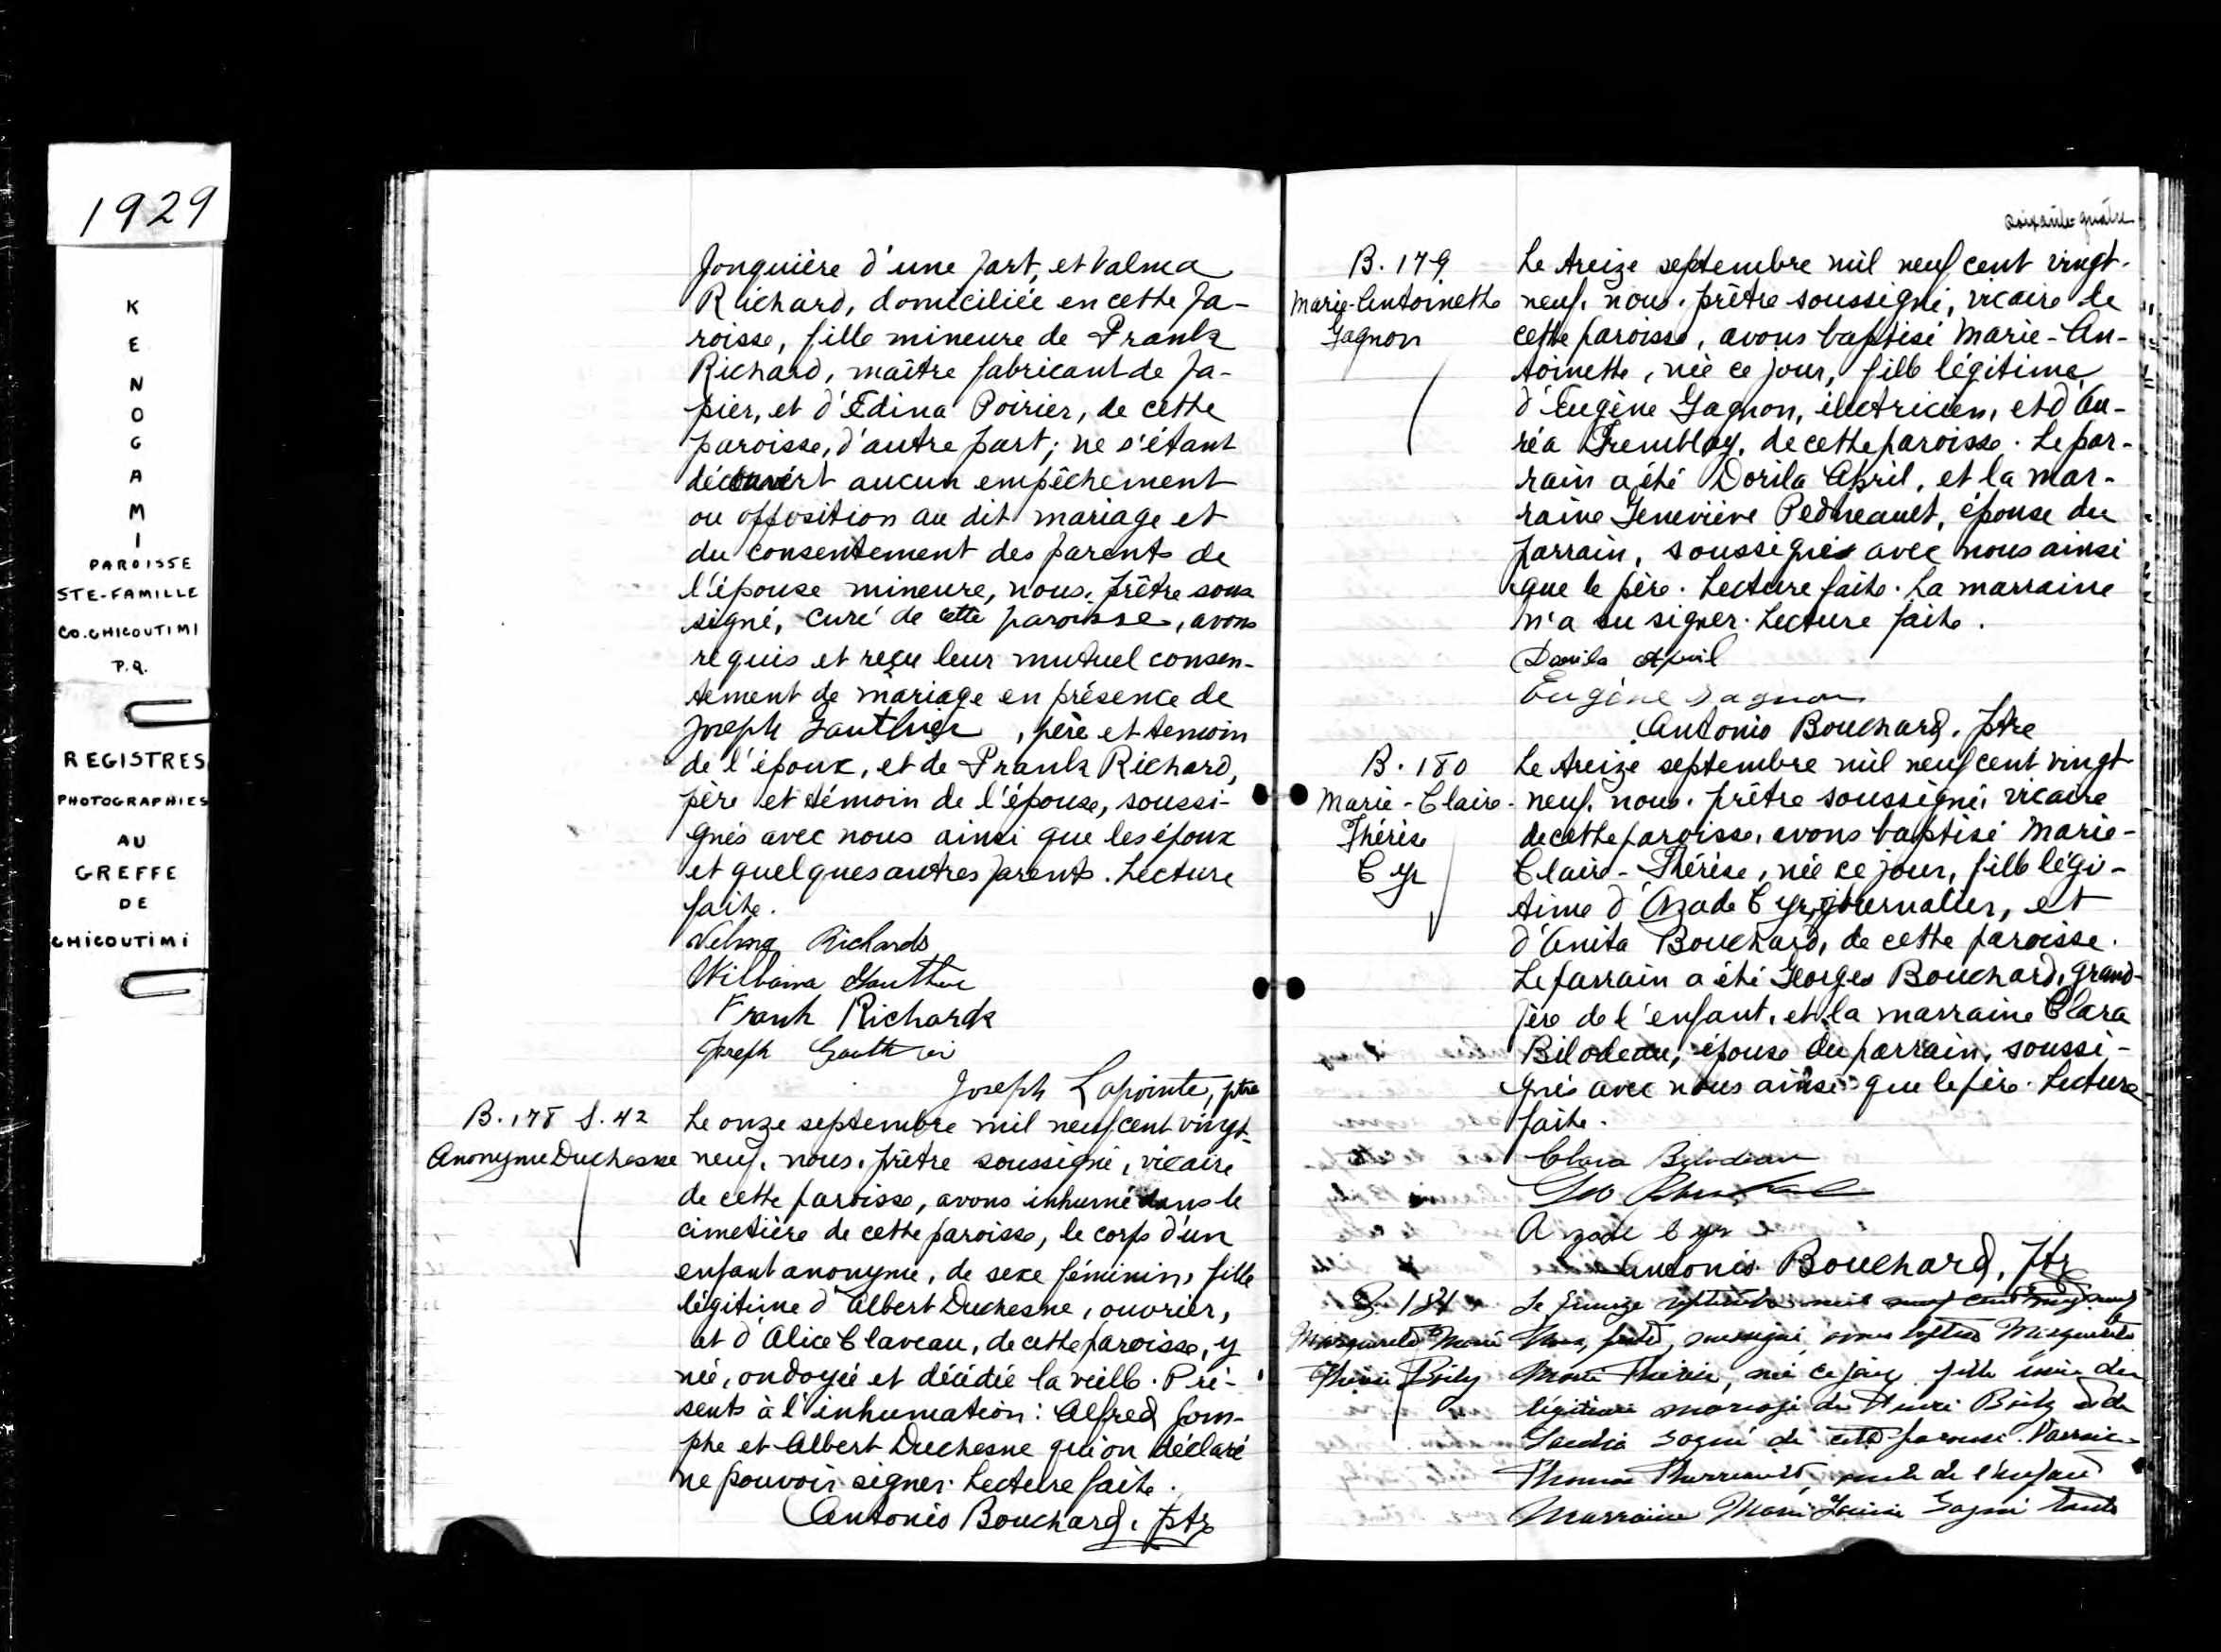 1929
KENOGAMI
PAROISSE
STE-FAMILLE
CO. CHICOUTIMI
P.Q.
REGISTRES
PHOTOGRAPHIES
AU
GREFFE
DE
CHICOUTIMI
Jonquière d'une part, et Valma
Richard, domiciliée en cette pa-
roisse, fille mineure de Frank
Richard, maître fabricant de pa-
pier, et d'Edina Poirier, de cette
paroisse, d'autre part; ne s'étant
découvert aucun empêchement
ou opposition au dit mariage et
du consentement des parents de
l'épouse mineure, nous, prêtre sous
signé, curé de cette paroisse, avons
requis et reçu leur mutuel consen-
tement de mariage en présence de
Joseph Gauthier, père et temoin
de l'époux, et de Frank Richard,
père et témoin de l'épouse, soussi-
gnés avec nous ainsi que les époux
et quelques autres parents. Lecture
faite.
Velma Richards
Gauthier
Frank Richards
Joseph Gauthier
Joseph Lapointe, ptre
B. 178 S. 42
Anonyme Duchesne
Le onze septembre mil neuf cent vingt-
neuf, nous, prêtre soussigné, vicaire
de cette paroisse, avons inhumé dans le
cimetière de cette paroisse, le corps d'un
enfant anonyme, de sexe féminin, fille
légitime d'Albert Duchesne, ouvrier,
et d'Alice Claveau, de cette paroisse, y
née, ondoyée et décédée la veille. Pré-
sents à l'inhumation: Alfred Gom-
phe et Albert Duchesne qui on déclaré
ne pouvoir signer. Lecture faite.
Antonio Bouchard, ptre
soixante-quatre
B. 179
Marie-Antoinette
Gagnon
Le treize septembre mil neuf cent vingt-
neuf, nous, prêtre soussigné, vicaire de
cette paroisse, avons baptisé Marie-An-
toinette, née ce jour, fille légitime
d'Eugène Gagnon, électricien, et d'Au-
réa Tremblay, de cette paroisse. Le par-
rain a été Dorila April, et la mar-
raine Geneviève Pedneault, épouse du
parrain, soussignés avec nous ainsi
que le père. Lecture faite. La marraine
n'a su signer. Lecture faite.
April
Eugène Gagnon
Antonio Bouchard, ptre
B. 180
Marie-Claire-
Thérèse
Cyr
Le treize septembre mil neuf cent vingt-
neuf, nous, prêtre soussigné, vicaire
de cette paroisse, avons baptisé Marie-
Claire-Thérèse, née ce jour, fille légi-
time d'Azade Cyr, journalier, et
d'Anita Bouchard, de cette paroisse.
Le parrain a été Georges Bouchard, grand-
père de l'enfant, et la marraine Clara
Bilodeau, épouse du parrain, soussi-
gnés avec nous ainsi que le père. Lecture
faite.
Clara Bilodeau
Geo
Azade Cyr
Antonio Bouchard, ptr
B. 181
Marguerite Marie
Thérèse Boily
Le quinze septembre mil neuf cent vingt neuf
Nous, prêtre, soussigné, avons baptisé Marguerite
Marie Thérèse, née ce jour, fille issue du
légitime mariage de Henri Boily et de
Gagné de cette paroisse. Parrain
Thomas Therriault, oncle de l'enfant
Marraine Marie Gagné tante